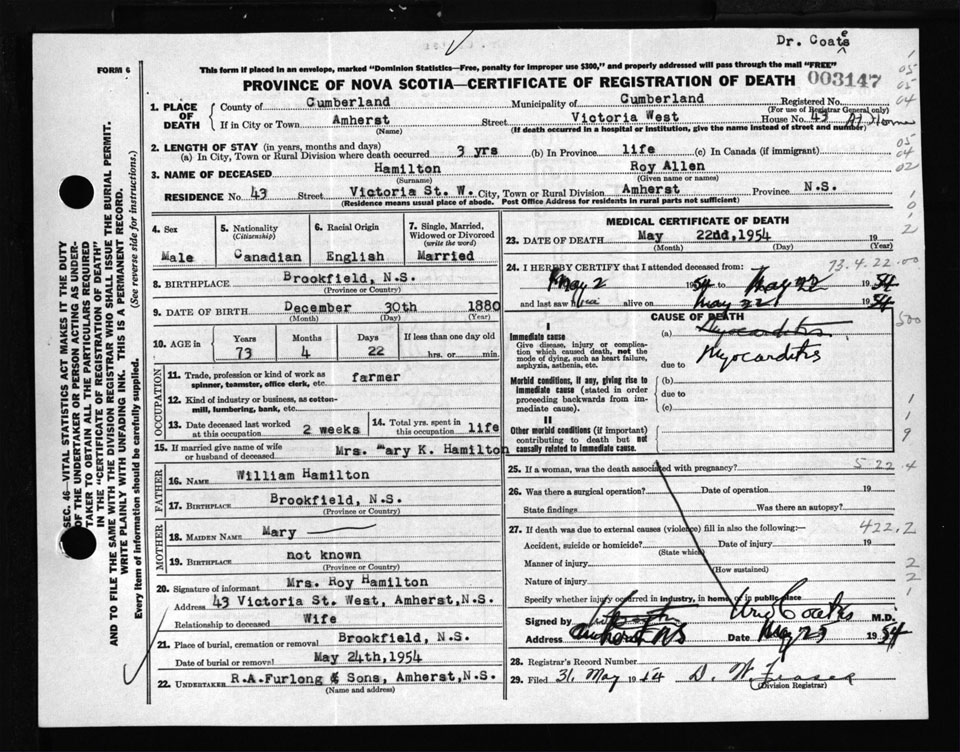 Dr. Coates
FORM 6
This form if placed in an envelope, marked "Dominion Statistics—Free, penalty for improper use $300," and properly addressed will pass through the mail "FREE"
003147
PROVINCE OF NOVA SCOTIA—CERTIFICATE OF REGISTRATION OF DEATH
1. PLACE OF DEATH
County of Cumberland Municipality of Cumberland Registered No.
(For use of Registrar General only)
If in City or Town Amherst Street Victoria West House No. 43 At Home
(Name) (If death occurred in a hospital or institution, give the name instead of street and number)
2. LENGTH OF STAY (in years, months and days)
(a) In City, Town or Rural Division where death occurred 3 yrs (b) In Province life (c) In Canada (if immigrant)
3. NAME OF DECEASED Hamilton Roy Allen
(Surname) (Given name or names)
RESIDENCE No. 43 Street Victoria St. W. City, Town or Rural Division Amherst Province N.S.
(Residence means usual place of abode. Post Office Address for residents in rural parts not sufficient)
4. Sex
Male
5. Nationality
(Citizenship)
Canadian
6. Racial Origin
English
7. Single, Married, Widowed or Divorced
(write the word)
Married
8. BIRTHPLACE Brookfield, N.S.
(Province or Country)
9. DATE OF BIRTH December 30th 1880
(Month) (Day) (Year)
10. AGE in
Years Months Days If less than one day old
73 4 22 hrs. or min.
OCCUPATION
11. Trade, profession or kind of work as farmer
spinner, teamster, office clerk, etc.
12. Kind of industry or business, as cotton-
mill, lumbering, bank, etc.
13. Date deceased last worked
at this occupation 2 weeks
14. Total yrs. spent in
this occupation life
15. If married give name of wife
or husband of deceased Mrs. Mary K. Hamilton
FATHER
16. NAME William Hamilton
17. BIRTHPLACE Brookfield, N.S.
(Province or Country)
MOTHER
18. MAIDEN NAME Mary
19. BIRTHPLACE not known
(Province or Country)
20. Signature of informant Mrs. Roy Hamilton
Address 43 Victoria St. West, Amherst, N.S.
Relationship to deceased Wife
21. Place of burial, cremation or removal Brookfield, N.S.
Date of burial or removal May 24th, 1954
22. UNDERTAKER R.A.Furlong & Sons, Amherst, N.S.
(Name and address)
MEDICAL CERTIFICATE OF DEATH
23. DATE OF DEATH May 22nd, 1954 19
(Month) (Day) (Year)
24. I HEREBY CERTIFY that I attended deceased from: 73.4.22.00
May 2 1954 to May 22 1954
and last saw him alive on May 22 1954
CAUSE OF DEATH
I
Immediate cause
Give disease, injury or complication which caused death, not the mode of dying, such as heart failure, asphyxia, asthenia, etc.
(a) Myocarditis
Myocarditis
due to
Morbid conditions, if any, giving rise to immediate cause (stated in order proceeding backwards from immediate cause).
(b)
due to
(c)
II
Other morbid conditions (if important) contributing to death but not causally related to immediate cause.
25. If a woman, was the death associated with pregnancy? 5.22.4
26. Was there a surgical operation? Date of operation 19
State findings Was there an autopsy?
27. If death was due to external causes (violence) fill in also the following:— 422.2
Accident, suicide or homicide? Date of injury 19
(State which)
Manner of injury
(How sustained)
Nature of injury
Specify whether injury occurred in industry, in home or in public place
Signed by Coates M.D.
Address Amherst NS Date May 23 1954
28. Registrar's Record Number
29. Filed 31 May 1954 D. W. Fraser
(Division Registrar)
SEC. 46—VITAL STATISTICS ACT MAKES IT THE DUTY
OF THE UNDERTAKER OR PERSON ACTING AS UNDER-
TAKER TO OBTAIN ALL THE PARTICULARS REQUIRED
IN THE "CERTIFICATE OF REGISTRATION OF DEATH"
AND TO FILE THE SAME WITH THE DIVISION REGISTRAR WHO SHALL ISSUE THE BURIAL PERMIT.
WRITE PLAINLY WITH UNFADING INK. THIS IS A PERMANENT RECORD.
Every item of information should be carefully supplied. (See reverse side for instructions.)
05
05
04
05
04
02
1
0
1
2
500
1
1
9
2
2
1